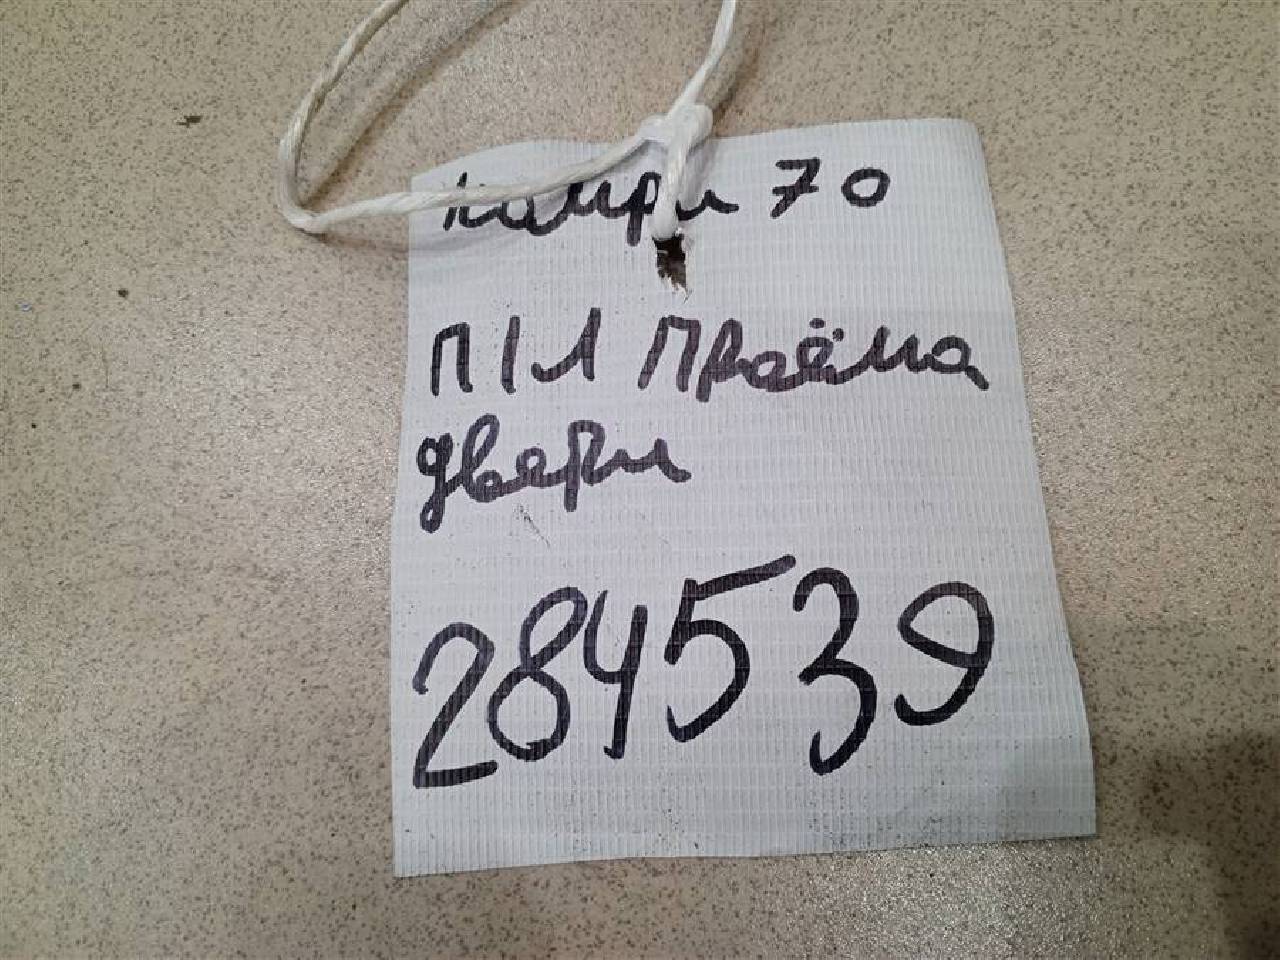 Камри 70
П/Л Проёма
двери
284539